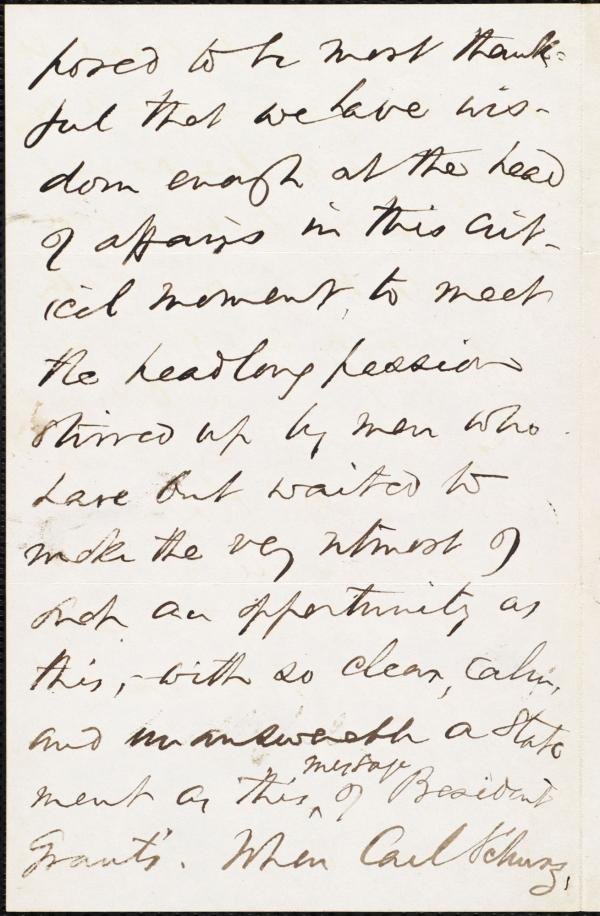 posed to be most thank=
ful that we have wis-
dom enough at the head
of affairs in this crit-
ical moment, to meet
the headlong passion
stirred up by men who
have but waited to
make the very utmost of
such an opportunity as
this, - with so clear, calm,
and unanswerable a State
ment as this message of President
Grant's. When Carl Schurz,